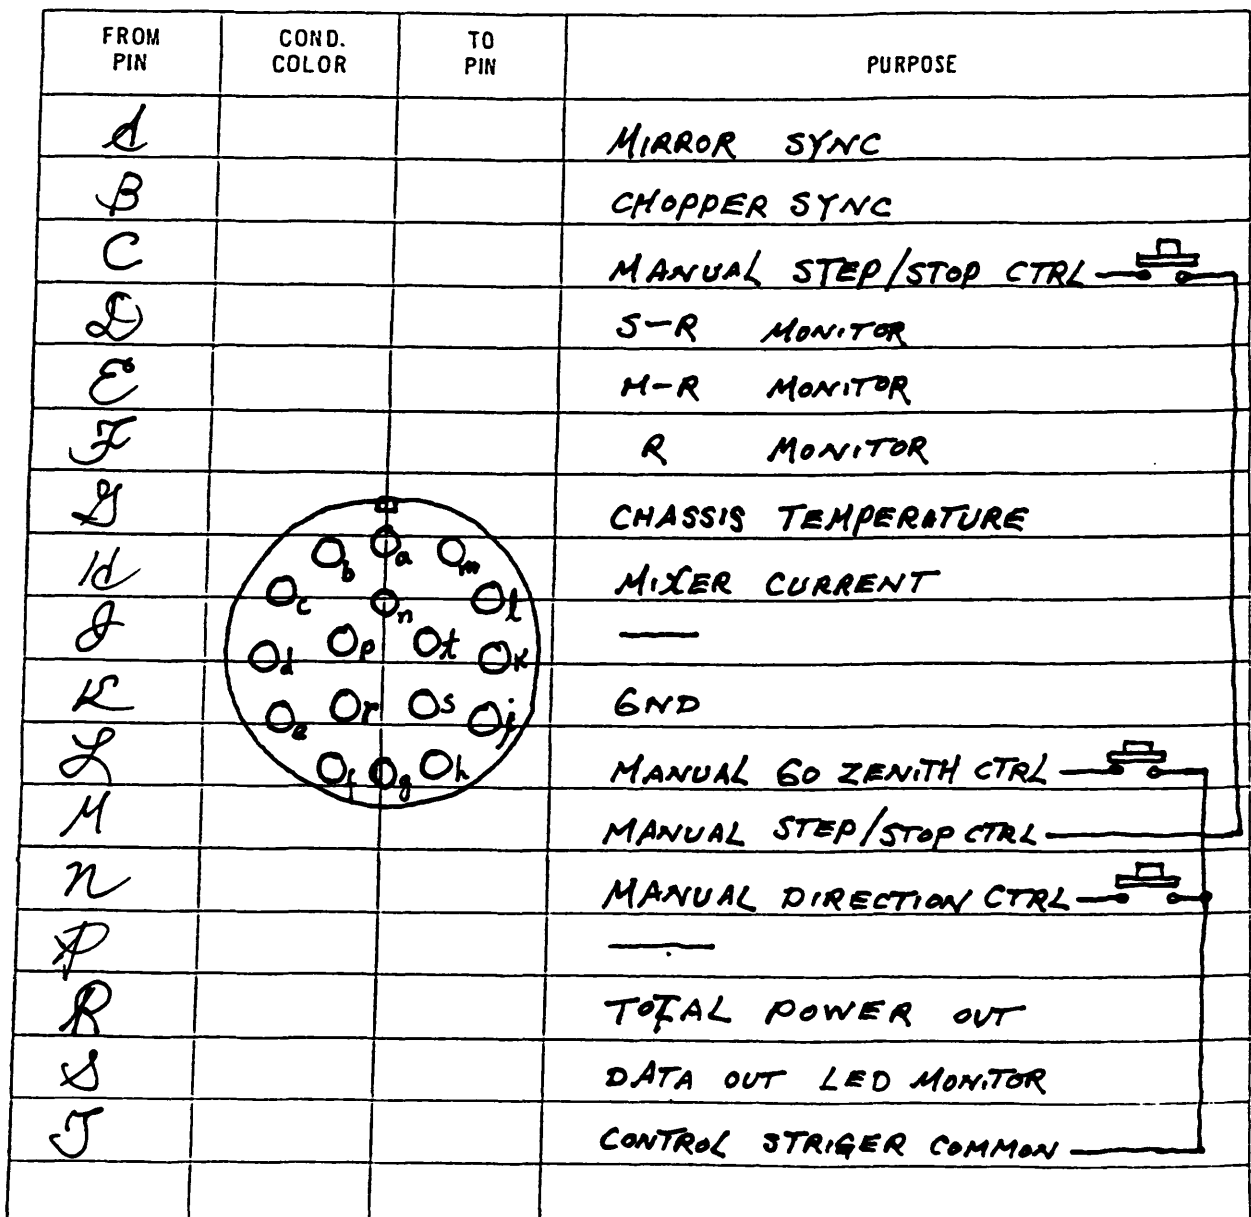 FROM PIN COND. COLOR TO PIN PURPOSE
A MIRROR SYNC
B CHOPPER SYNC
C MANUAL STEP/STOP CTRL
D S-R MONITOR
E H-R MONITOR
F R MONITOR
G CHASSIS TEMPERATURE
H MIXER CURRENT
J —
K GND
L MANUAL GO ZENITH CTRL
M MANUAL STEP/STOP CTRL
N MANUAL DIRECTION CTRL
P —
R TOTAL POWER OUT
S DATA OUT LED MONITOR
T CONTROL STRIGER COMMON
b a m
c n l
d p t k
e r s j
f g h